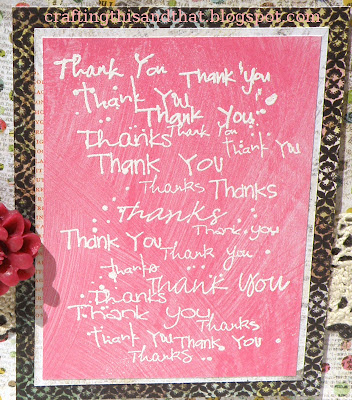 craftingthisandthat.blogspot.com
Thank You Thank you
Thank You
Thank You
Thanks Thank You
Thank You
Thank You
Thanks Thanks
Thanks
Thank you
Thank You
Thank You
Thanks
Thank You
Thanks
Thank you
Thanks
Thank You Thank You
Thanks